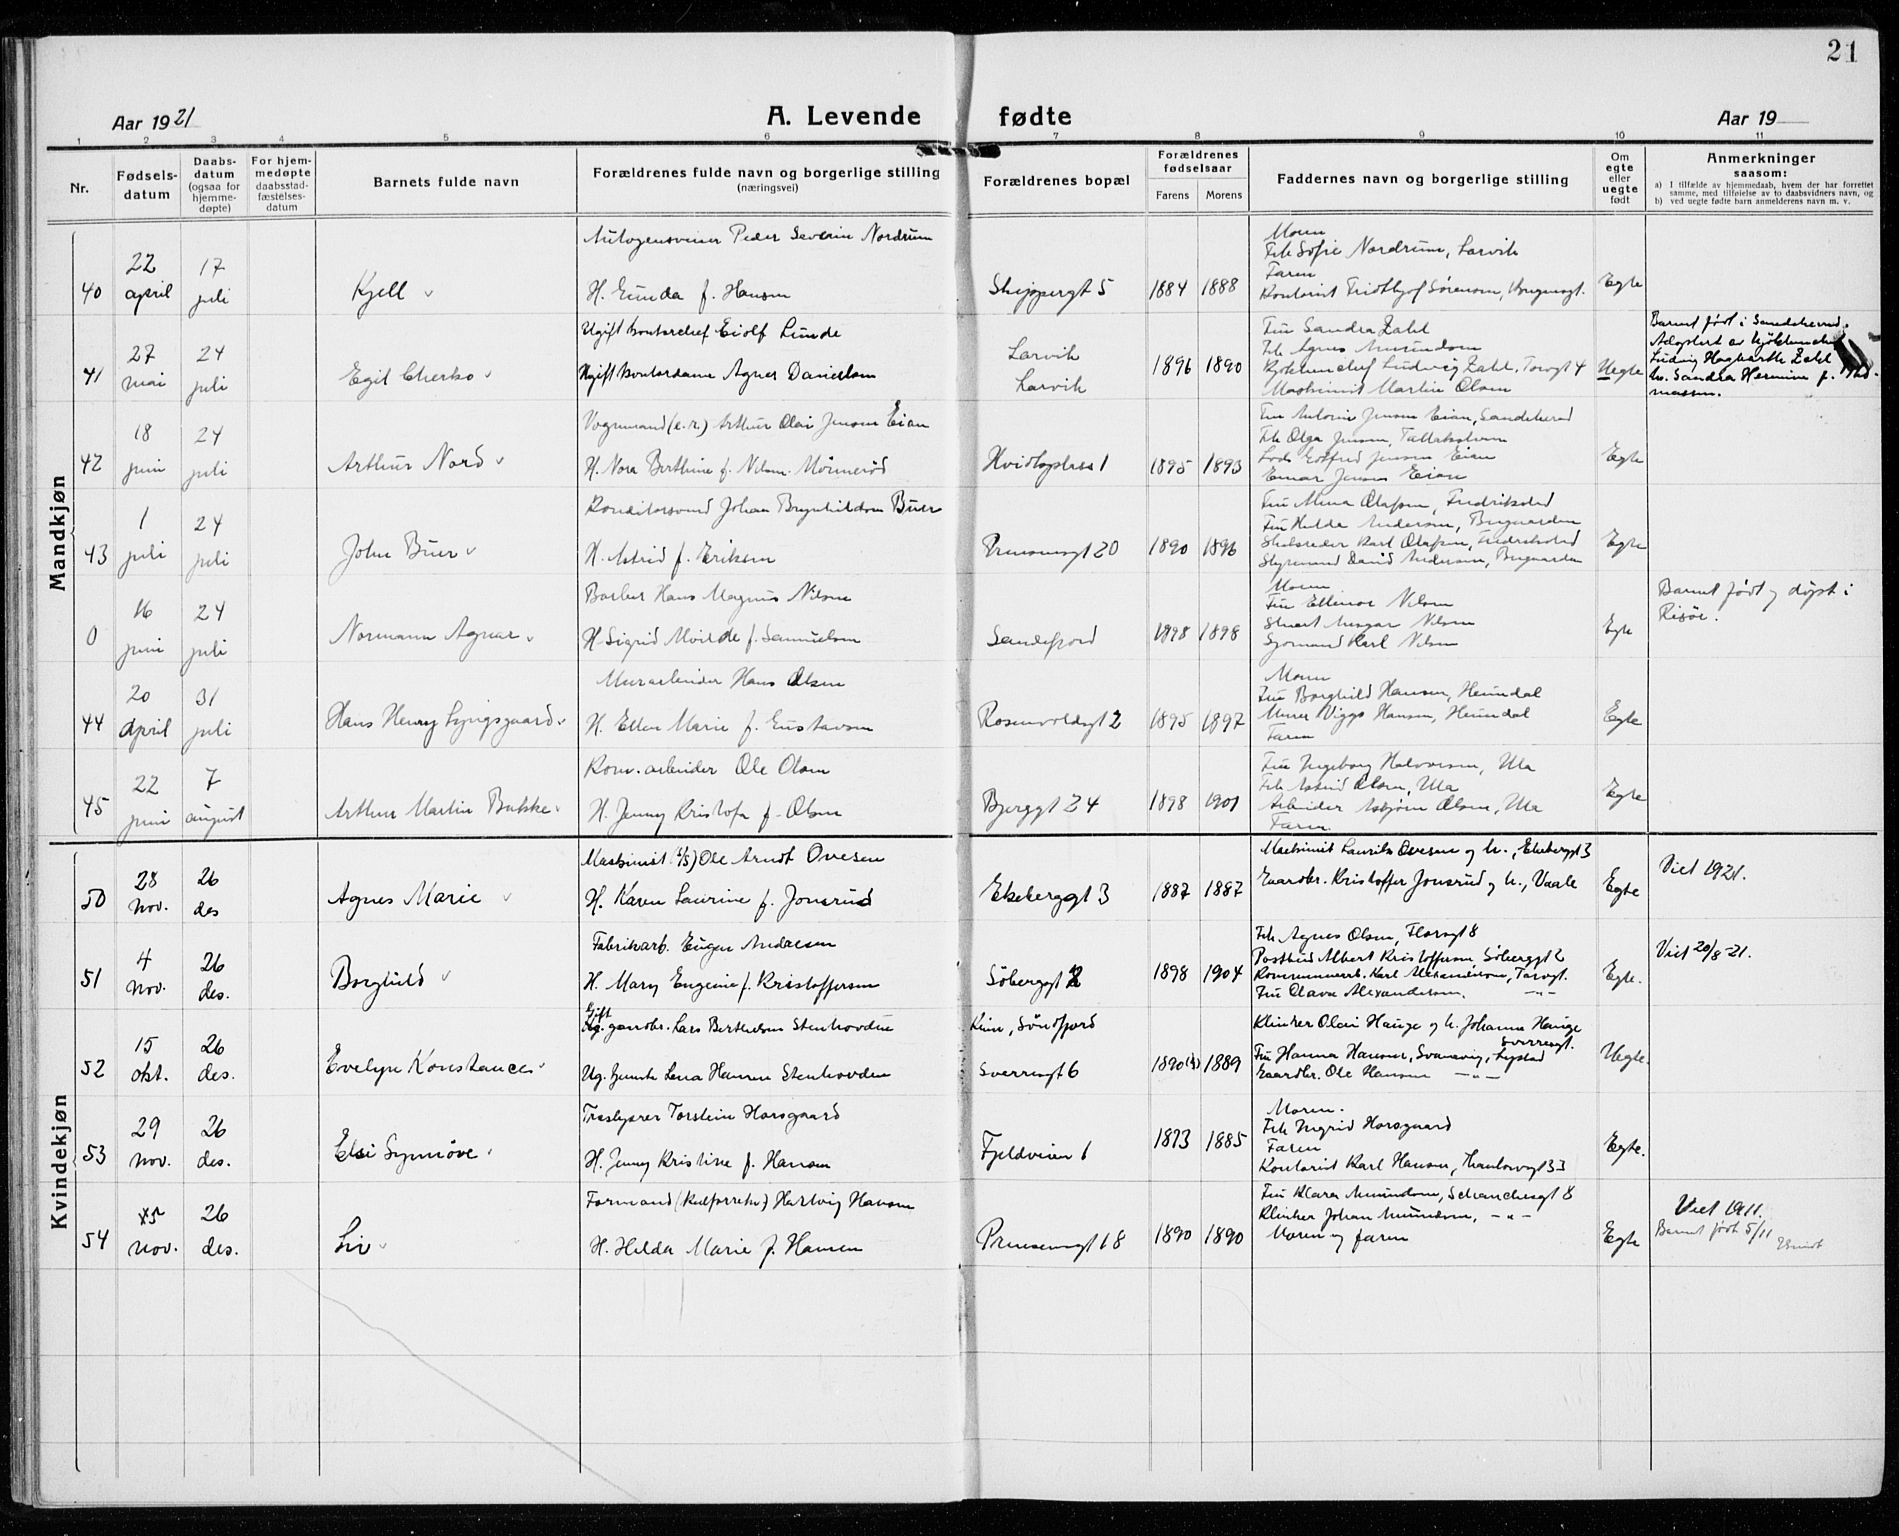 21
Aar 1921
A. Levende fødte
Aar 19
1 2 3 4 5 6 7 8 9 10 11
Nr.
Fødsels-
datum
Daabs-
datum
(ogsaa for
hjemme-
døpte)
For hjem-
medøpte
daabsstad-
fæstelses-
datum
Barnets fulde navn
Forældrenes fulde navn og borgerlige stilling
(næringsvei)
Forældrenes bopæl
Forældrenes
fødselsaar
Farens Morens
Faddernes navn og borgerlige stilling
Om
egte
eller
uegte
født
Anmerkninger
saasom:
a) I tilfælde av hjemmedaab, hvem der har forrettet
samme, med tilføielse av to daabsvidners navn, og
b) ved uegte fødte barn anmelderens navn m. v.
Mandkjøn
40
22
april
17
juli
Kjell
Peder Severin Nordrum
H. Gunda f. Hansen
Skippergt 5
1884 1888
Moren
Frk Sofie Nordrum, Larvik
Faren
Kontorist Fridthjof Sørensen,
Egte
41
27
mai
24
juli
Egil
Ugift kontorchef Eiolf Lunde
Ugift kontordame Agnes Danielsen
Larvik
Larvik
1896 1890
Fru Sandra Zahl
Frk Agnes Amundsen
Ludvig Zahl, Torvgt 4
Maskinist Martin Olsen
Uegte
Barnet født i Sandeherred.
Adoptert av
Ludvig Hagbarth Zahl
h. Sandra Hermine f. Tho-
massen.
42
18
juni
24
juli
Arthur Nord
Vognmand (e.r.) Arthur Olai Jensen Eian
H. Nora Berthine f. Nilsen
1895 1893
Fru Antonie Jensen Eian, Sandeherred
Frk Olga Jensen,
Jensen Eian
Einar Jensen Eian
Egte
43
1
juli
24
juli
John Buer
Konditorsvend Johan Brynhildsen Buer
H. Astrid f. Eriksen
Prinsensgt 20
1890 1896
Fru Mina Olafsen, Fredrikstad
Fru Hilda Andersen,
Skibsreder Karl Olafsen, Fredrikstad
Styrmand David Andersen,
Egte
0
16
juni
24
juli
Normann Agnar
Barber Hans Magnus Nilsen
H. Sigrid f. Samuelsen
Sandefjord
1898 1898
Moren
Fru Ellinor Nilsen
Stuert Ansgar Nilsen
Sjømand Karl Nilsen
Egte
Barnet født og døpt i
Risör.
44
20
April
31
juli
Hans Henry Lyngsgaard
Murarbeider Hans Olsen
H. Ellen Marie f. Gustavsen
Rosenvoldsgt 2
1895 1897
Moren
Fru Borghild Hansen, Heimdal
Murer Viggo Hansen, Heimdal
Faren
Egte
45
22
juni
7
august
Arthur Martin Bakke
Kom. arbeider Ole Olsen
H. Jenny Kristofa f. Olsen
Bjerggt 24
1898 1901
Fru Ingeborg Halvorsen, Ula
Frk Astrid Olsen, Ula
Arbeider Asbjørn Olsen, Ula
Faren.
Egte
Kvindekjøn
50
28
nov.
26
des
Agnes Marie
Maskinist (t/s) Ole Arndt Ovesen
H. Karen Laurine f. Jonsrud
Ekeberggt 3
1887 1887
Maskinist Laurits Ovesen og h., Ekebergt 3
Gaardbr. Kristoffer Jonsrud og h., Vaale
Egte
Viet 1921.
51
4
nov.
26
des.
Borghild
Fabrikarb. Eugen Andresen
H. Mary Eugenie f. Kristoffersen
Söberggt 2
1898 1904
Frk. Agnes Olsen, Florsgt 8
Postbud Albert Kristoffersen Söberggt 2
Kommunearb. Karl Alexandersen, Torvgt.
Fru Olava Alexandersen. -"-
Egte.
Viet 20/8-21.
52
15
okt.
26
des.
Evelyn Konstance
Gift
Ug. gaardbr. Lars Berthelsen Stenhovden
Ug. Lena Hansen Stenhovden
Kinn, Söndfjord
Sverresgt 6
1890(?) 1889
Klinker Olai Hauge og h. Johanne Hauge
Sverresgt.
Fru Hanna Hansen, Svanevig,
Gaardbr. Ole Hansen -"-
Uegte.
53
29
nov.
26
des.
Elsi Synnöve
Træskjærer Torstein Horsgaard
H. Jenny Kristine f. Hansen
Fjeldveien 1
1873 1885
Moren.
Frk Ingrid Horsgaard
Faren
Kontorist Karl Hansen, Thaulowsgt 33
Egte.
54
5
nov.
26
des.
Liv
Formand Hartvig Hansen
H. Hilda Marie f. Hansen
Prinsensgt 18
1890 1890
Fru Klara Amundsen, Schanchesgt 8
Klinker Johan Amundsen, -"-
Moren og faren
Egte
Viet 1911.
Barnet født 5/11